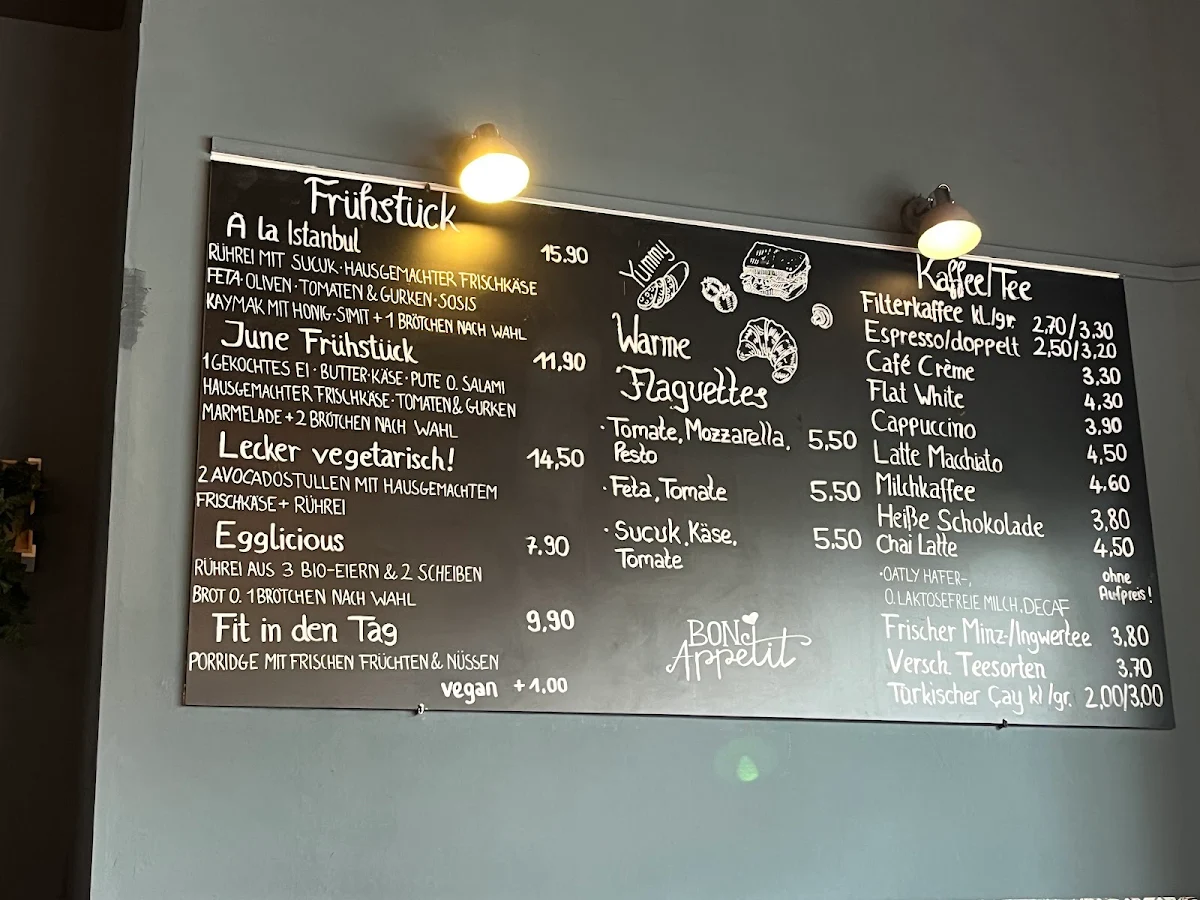 Frühstück
A la Istanbul 15.90
RÜHREI MIT SUCUK·HAUSGEMACHTER FRISCHKÄSE
FETA·OLIVEN·TOMATEN & GURKEN·SOSIS
KAYMAK MIT HONIG·SIMIT + 1 BRÖTCHEN NACH WAHL
June Frühstück 11,90
1 GEKOCHTES EI·BUTTER·KÄSE·PUTE O. SALAMI
HAUSGEMACHTER FRISCHKÄSE·TOMATEN & GURKEN
MARMELADE + 2 BRÖTCHEN NACH WAHL
Lecker vegetarisch! 14,50
2 AVOCADOSTULLEN MIT HAUSGEMACHTEM
FRISCHKÄSE + RÜHREI
Egglicious 7.90
RÜHREI AUS 3 BIO-EIERN & 2 SCHEIBEN
BROT O. 1 BRÖTCHEN NACH WAHL
Fit in den Tag 9,90
PORRIDGE MIT FRISCHEN FRÜCHTEN & NÜSSEN
vegan +1.00
Yummy
Warme
Flaguettes
·Tomate, Mozzarella, 5,50
Pesto
·Feta, Tomate 5.50
·Sucuk, Käse, 5.50
Tomate
BON
Appetit
Kaffee/Tee
Filterkaffee kl./gr. 2,70/3,30
Espresso/doppelt 2,50/3,20
Café Crème 3,30
Flat White 4,30
Cappuccino 3,90
Latte Macchiato 4,50
Milchkaffee 4.60
Heiße Schokolade 3,80
Chai Latte 4,50
·OATLY HAFER-, ohne
O. LAKTOSEFREIE MILCH, DECAF Aufpreis!
Frischer Minz-/Ingwertee 3,80
Versch. Teesorten 3.70
Türkischer Çay kl/gr. 2,00/3,00